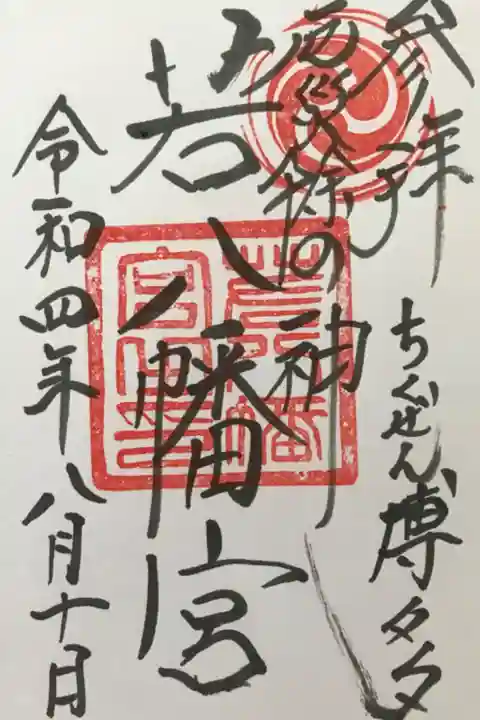 参拝
ちくぜん博多
厄災除の神
若八幡宮
令和四年八月十日